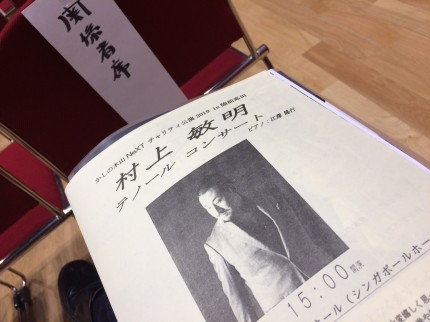 関係者席
かしの木山NeXT チャリティ公演2019 in 陸前高田
村上敏明
テノール コンサート
ピアノ:江澤隆行
15:00 開演
ール(シンガポールホー